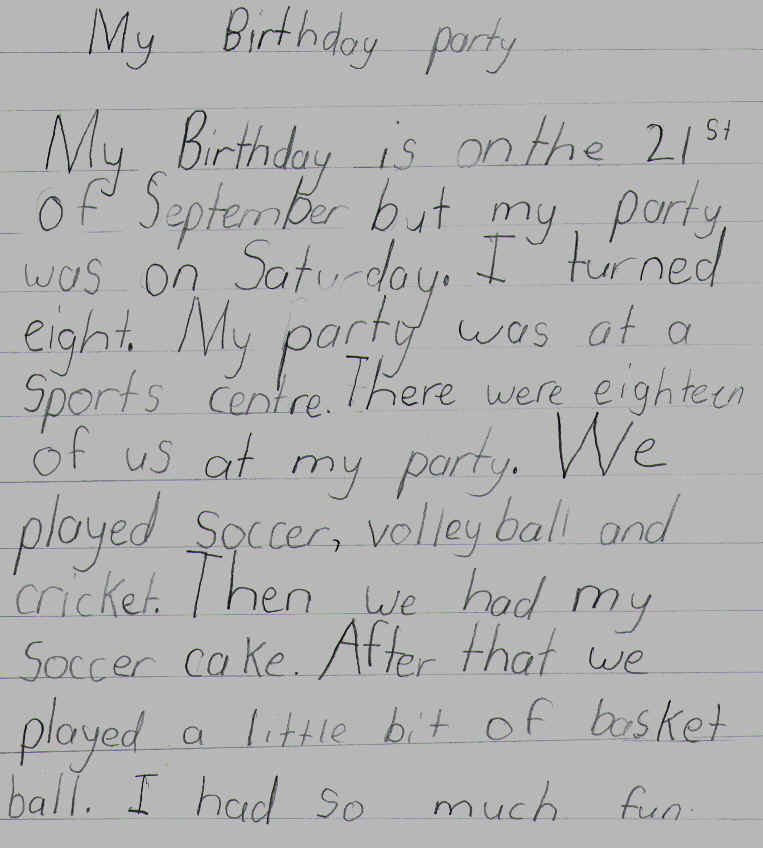 My Birthday party
My Birthday is on the 21st
of September but my party
was on Saturday. I turned
eight. My party was at a
Sports centre. There were eighteen
of us at my party. We
played Soccer, volley ball and
cricket. Then we had my
Soccer cake. After that we
played a little bit of basket
ball. I had so much fun.